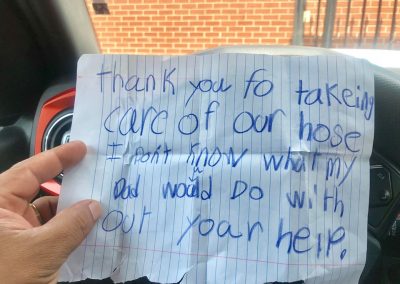 thank you fo takeing
care of our hose
I Don't know what my
Dad would Do with
out your help.